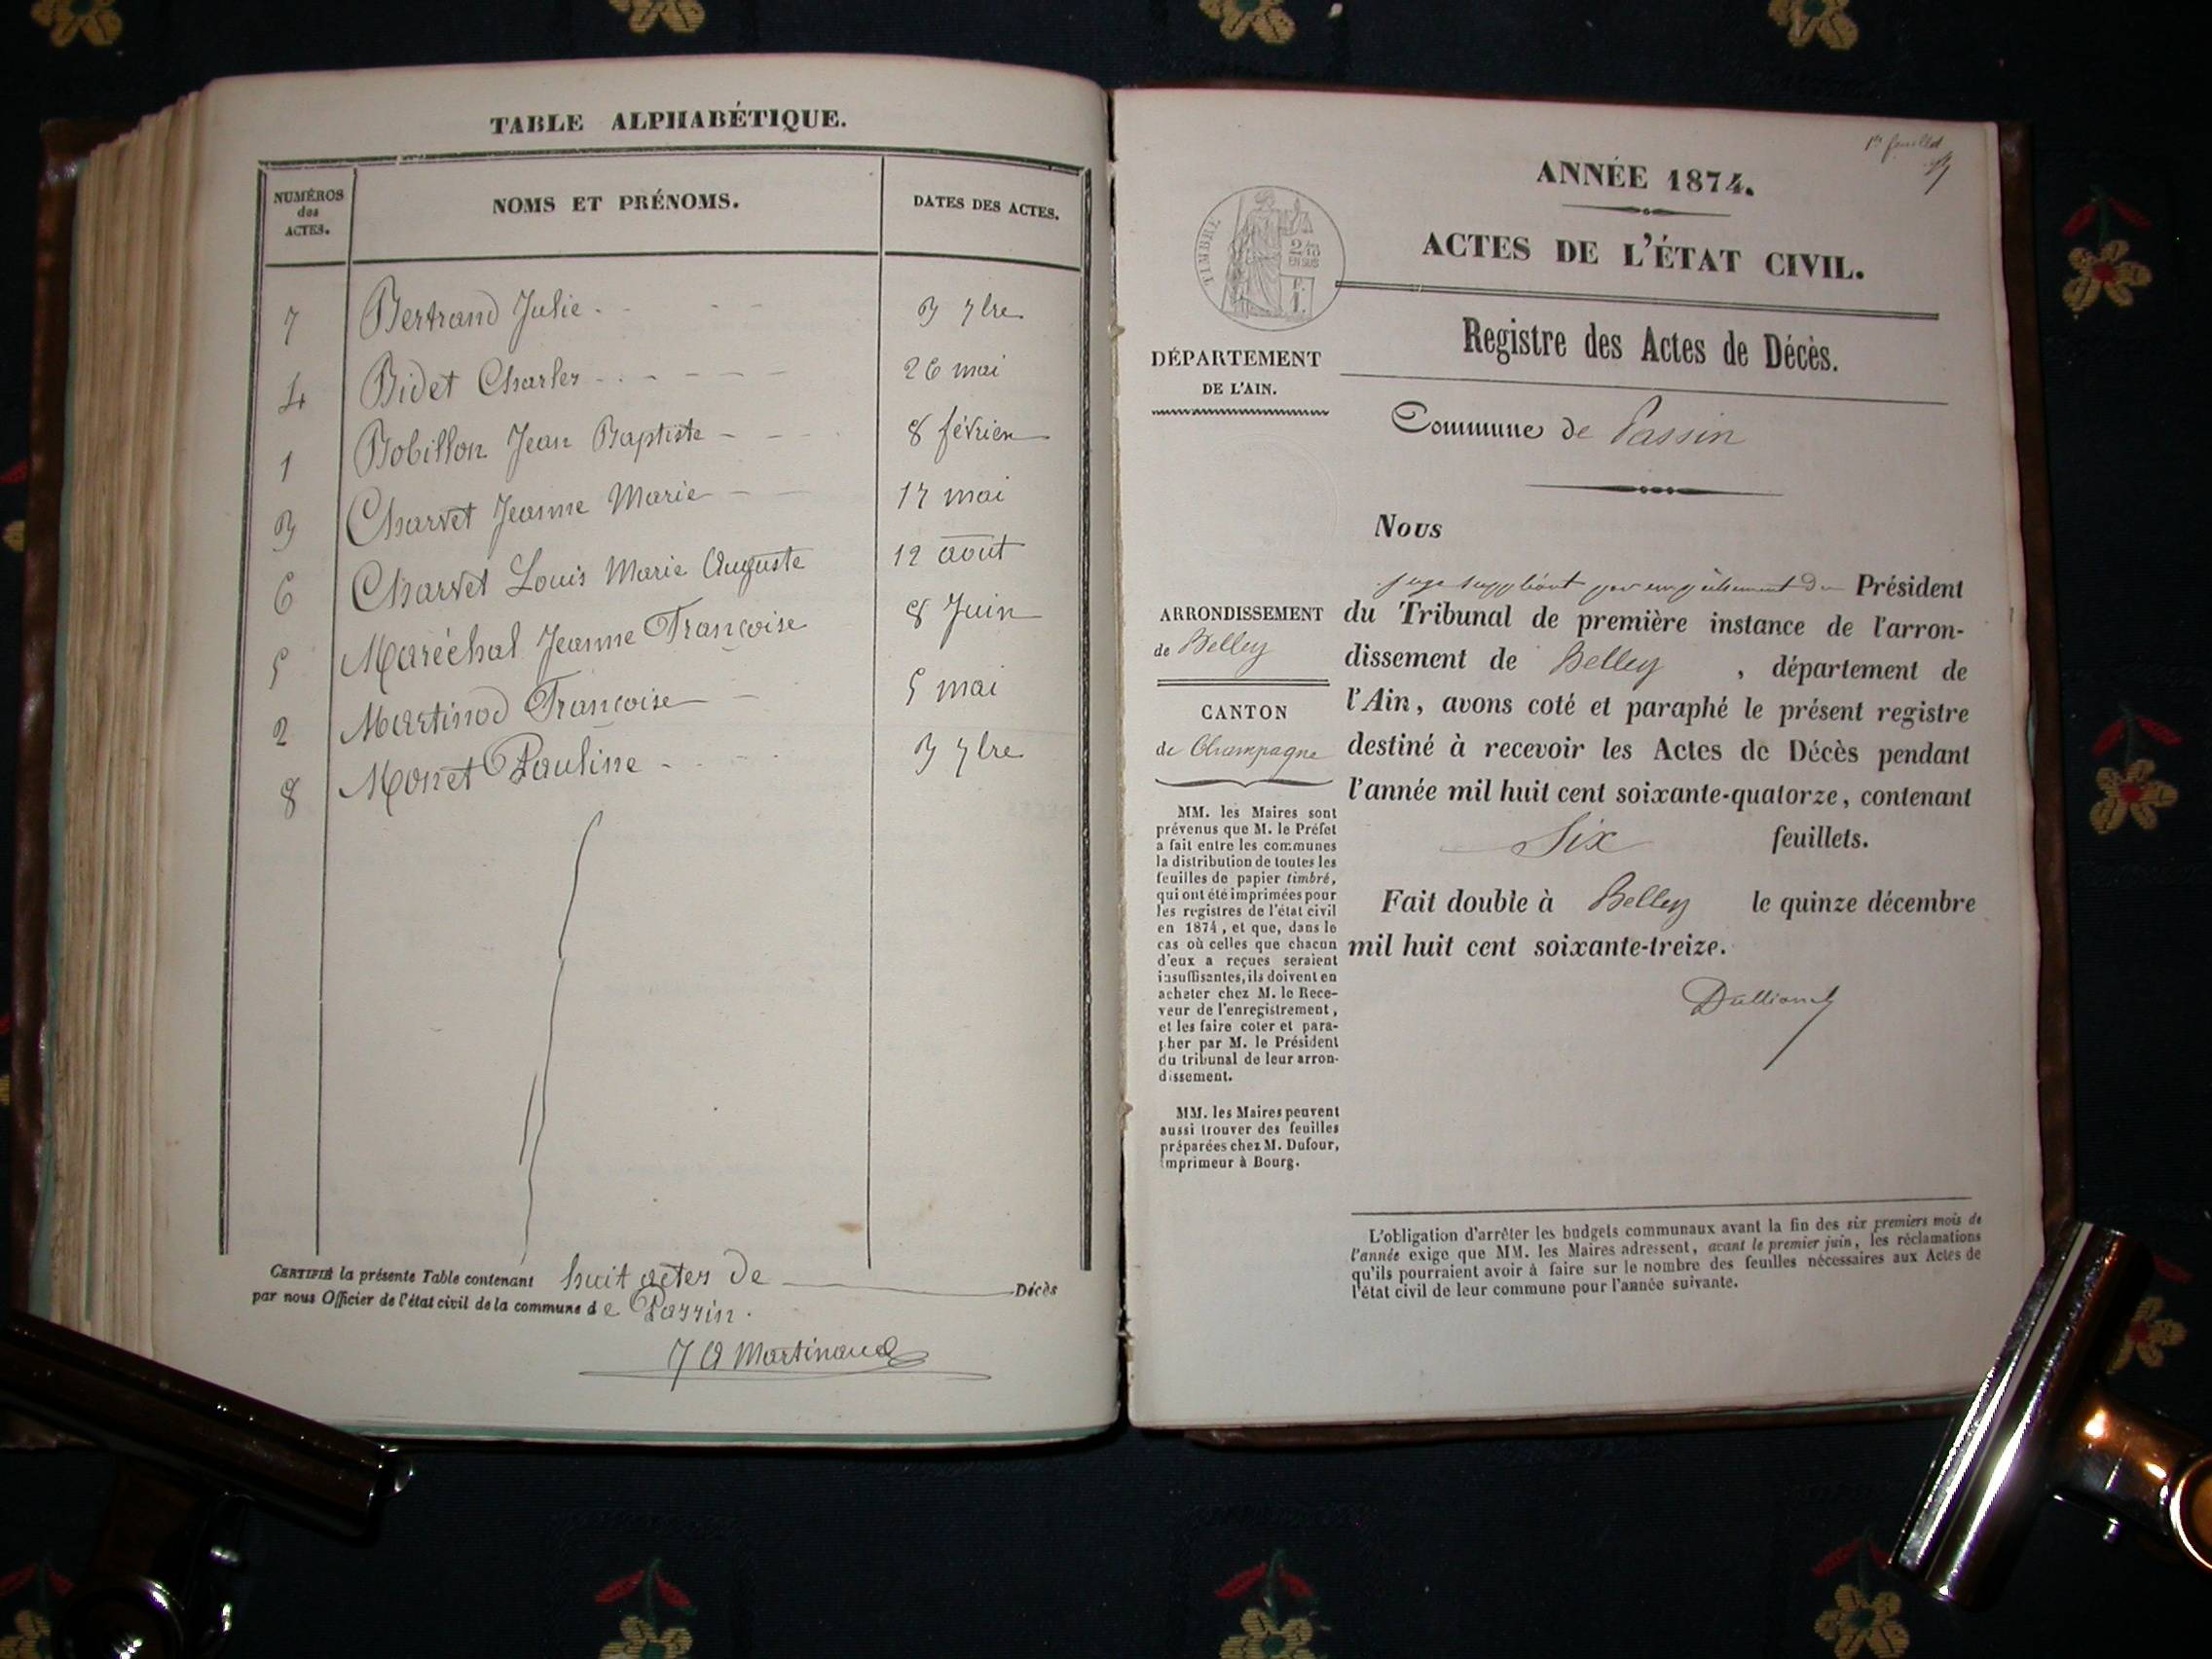 TABLE ALPHABÉTIQUE.
NUMÉROS des ACTES. NOMS ET PRÉNOMS. DATES DES ACTES.
7 Bertrand Julie 3 7bre
4 Bidet Charles 26 mai
1 Bobillon Jean Baptiste 8 février
3 Charvet Jeanne Marie 17 mai
6 Charvet Louis Marie Auguste 12 août
5 Maréchal Jeanne Françoise 8 Juin
2 Martinod Françoise 5 mai
8 Monet Pauline 3 7bre
CERTIFIÉ la présente Table contenant huit actes de Décès
par nous Officier de l'état civil de la commune de Passin.
Martinand
1er feuillet
ANNÉE 1874.
ACTES DE L'ÉTAT CIVIL.
TIMBRE
2/10
EN SUS
Registre des Actes de Décès.
DÉPARTEMENT
DE L'AIN.
Commune de Passin
Nous
juge suppléant par empêchement du Président
du Tribunal de première instance de l'arron-
dissement de Belley, département de
l'Ain, avons coté et paraphé le présent registre
destiné à recevoir les Actes de Décès pendant
l'année mil huit cent soixante-quatorze, contenant
Six feuillets.
Fait double à Belley le quinze décembre
mil huit cent soixante-treize.
ARRONDISSEMENT
de Belley
CANTON
de Champagne
MM. les Maires sont
prévenus que M. le Préfet
a fait entre les communes
la distribution de toutes les
feuilles de papier timbré,
qui ont été imprimées pour
les registres de l'état civil
en 1874, et que, dans le
cas où celles que chacun
d'eux a reçues seraient
insuffisantes, ils doivent en
acheter chez M. le Rece-
veur de l'enregistrement,
et les faire coter et para-
pher par M. le Président
du tribunal de leur arron-
dissement.
MM. les Maires peuvent
aussi trouver des feuilles
préparées chez M. Dufour,
imprimeur à Bourg.
L'obligation d'arrêter les budgets communaux avant la fin des six premiers mois de
l'année exige que MM. les Maires adressent, avant le premier juin, les réclamations
qu'ils pourraient avoir à faire sur le nombre des feuilles nécessaires aux Actes de
l'état civil de leur commune pour l'année suivante.